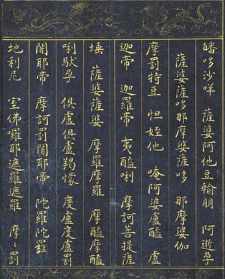 皤哆沙咩 薩婆阿他豆輸朋 阿逝孕
薩婆薩哆那摩婆薩哆 那摩婆伽
摩罰特豆 怛姪他 唵阿婆盧醯
盧迦帝 迦羅帝 夷醯唎 摩訶菩提薩
埵 薩婆薩婆 摩羅摩羅 摩醯摩醯
唎馱孕 俱盧俱盧羯懞 度盧度盧罰
闍耶帝 摩訶罰闍耶帝 陀羅陀羅
地利尼 室佛囉耶遮羅遮羅 摩摩罰